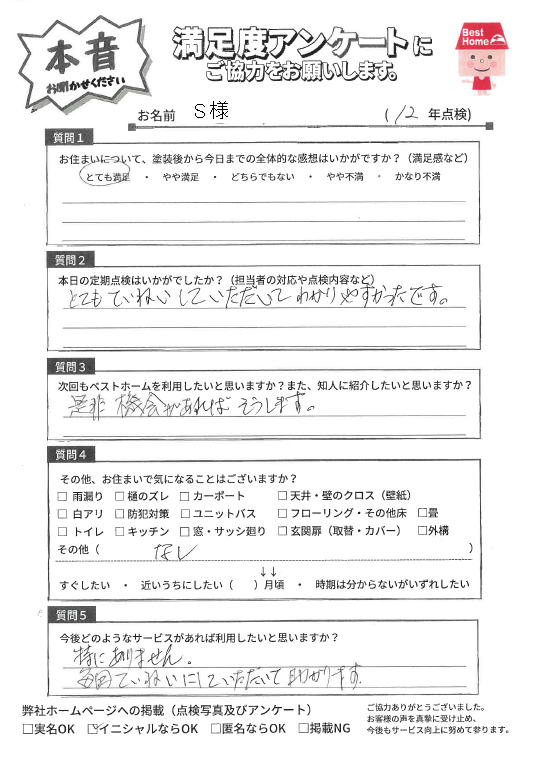 本音
お聞かせください
満足度アンケートに
ご協力をお願いします。
Best Home
お名前 S様 (1/2 年点検)
質問1
お住まいについて、塗装後から今日までの全体的な感想はいかがですか？（満足感など）
とても満足 ・ やや満足 ・ どちらでもない ・ やや不満 ・ かなり不満
質問2
本日の定期点検はいかがでしたか？（担当者の対応や点検内容など）
とてもていねいにしていただいてわかりやすかったです。
質問3
次回もベストホームを利用したいと思いますか？また、知人に紹介したいと思いますか？
是非機会があればそうします。
質問4
その他、お住まいで気になることはございますか？
□ 雨漏り □ 樋のズレ □ カーポート □ 天井・壁のクロス（壁紙）
□ 白アリ □ 防犯対策 □ ユニットバス □ フローリング・その他床 □畳
□ トイレ □ キッチン □ 窓・サッシ廻り □ 玄関扉（取替・カバー） □外構
その他（ なし ）
↓↓
すぐしたい ・ 近いうちにしたい（ ）月頃 ・ 時期は分からないがいずれしたい
質問5
今後どのようなサービスがあれば利用したいと思いますか？
特にありません。
毎回ていねいにしていただいて助かります。
弊社ホームページへの掲載（点検写真及びアンケート）
□実名OK ☑イニシャルならOK □匿名ならOK □掲載NG
ご協力ありがとうございました。
お客様の声を真摯に受け止め、
今後もサービス向上に努めて参ります。